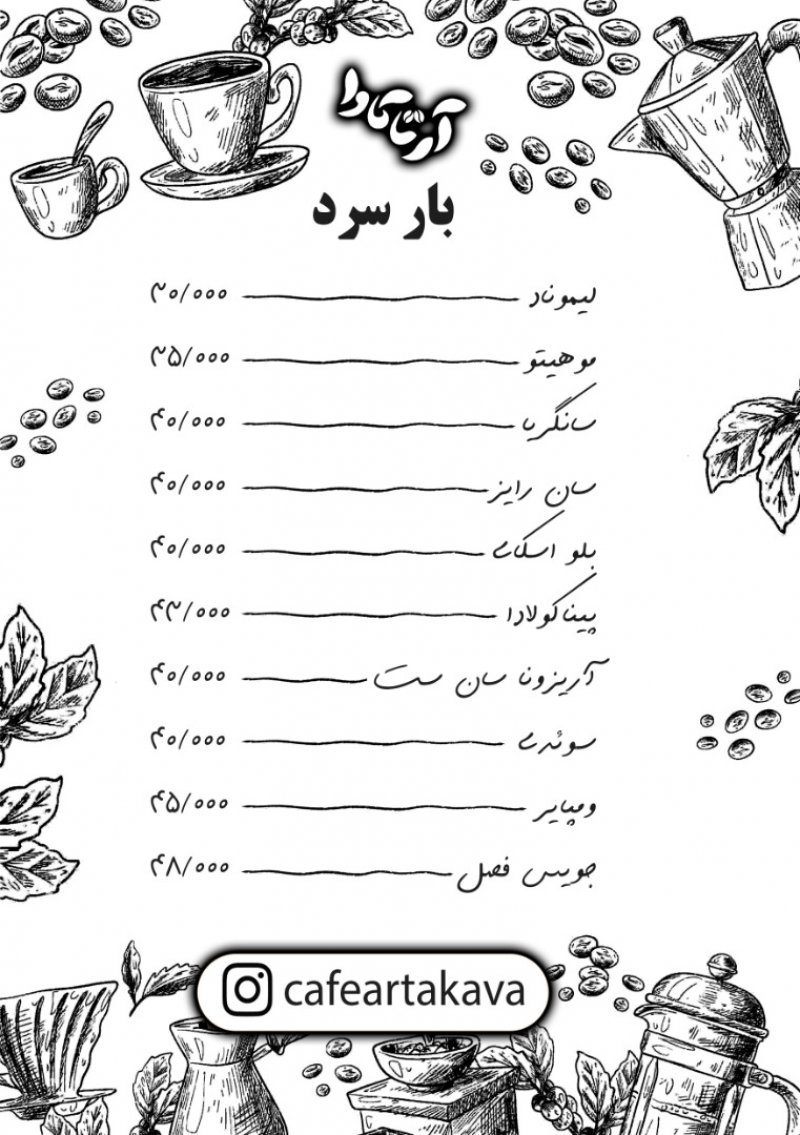 آرتاکاوا
بار سرد
لیموناد ۳۰/۰۰۰
موهیتو ۳۵/۰۰۰
سانگریا ۴۰/۰۰۰
سان رایز ۴۰/۰۰۰
بلو اسکای ۴۰/۰۰۰
پیناکولادا ۴۳/۰۰۰
آریزونا سان ست ۴۰/۰۰۰
سوئدی ۴۰/۰۰۰
ومپایر ۴۵/۰۰۰
جویس فصل ۴۸/۰۰۰
cafeartakava